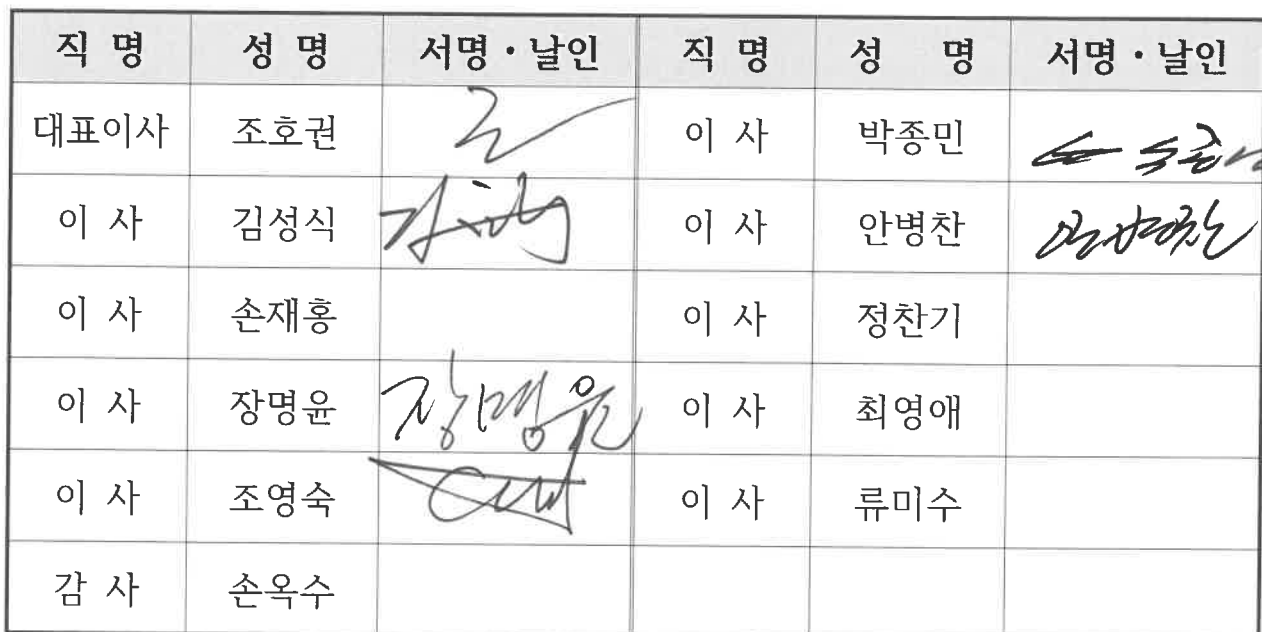 직 명 성 명 서명·날인 직 명 성 명 서명·날인
대표이사 조호권 이 사 박종민
이 사 김성식 이 사 안병찬
이 사 손재홍 이 사 정찬기
이 사 장명윤 장명윤 이 사 최영애
이 사 조영숙 이 사 류미수
감 사 손옥수